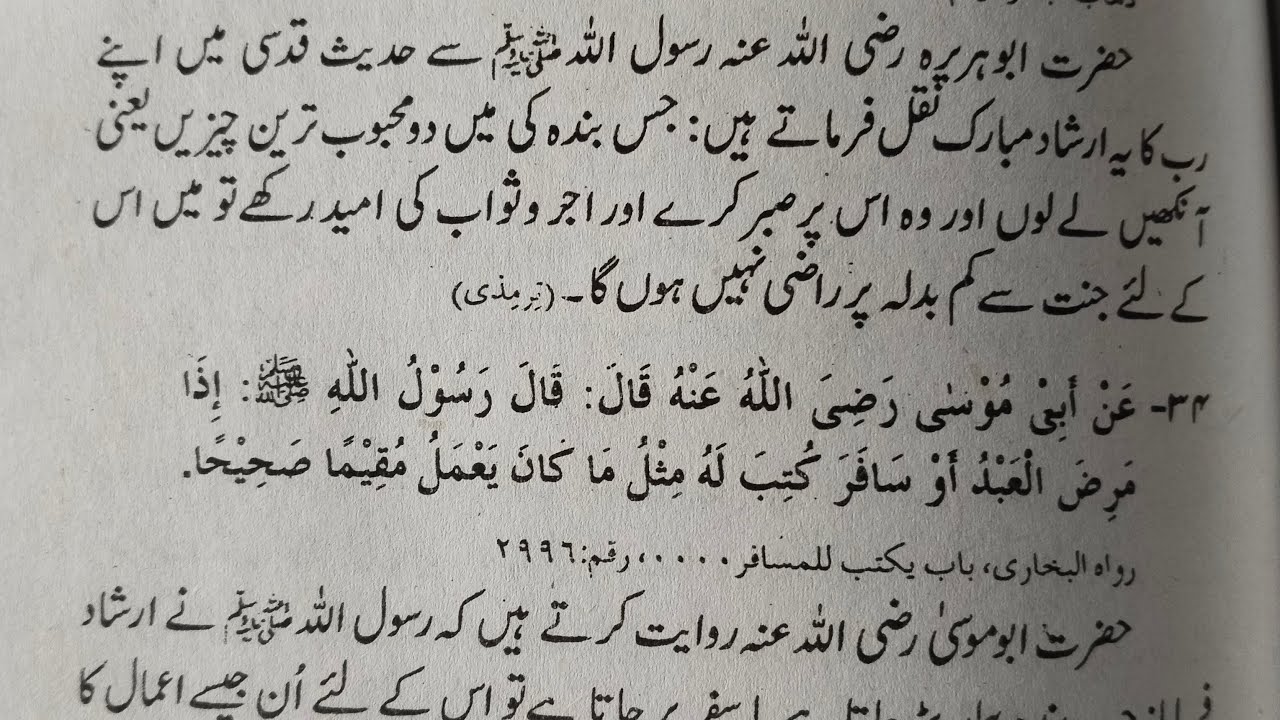 حضرت ابوہریرہ رضی اللہ عنہ رسول اللہ ﷺ سے حدیث قدسی میں اپنے
رب کا یہ ارشاد مبارک نقل فرماتے ہیں: جس بندہ کی میں دو محبوب ترین چیزیں یعنی
آنکھیں لے لوں اور وہ اس پر صبر کرے اور اجر و ثواب کی امید رکھے تو میں اس
کے لئے جنت سے کم بدلہ پر راضی نہیں ہوں گا۔ (ترمذی)
۳۴- عَنْ أَبِیْ مُوْسٰی رَضِیَ اللّٰهُ عَنْهُ قَالَ: قَالَ رَسُوْلُ اللّٰهِ ﷺ: إِذَا
مَرِضَ الْعَبْدُ أَوْ سَافَرَ كُتِبَ لَهُ مِثْلُ مَا كَانَ يَعْمَلُ مُقِيْمًا صَحِيْحًا.
رواه البخاری، باب یکتب للمسافر ۰۰۰۰، رقم: ۲۹۹٦
حضرت ابوموسیٰ رضی اللہ عنہ روایت کرتے ہیں کہ رسول اللہ ﷺ نے ارشاد
سفر پر جاتا ہے تو اس کے لئے اُن جیسے اعمال کا